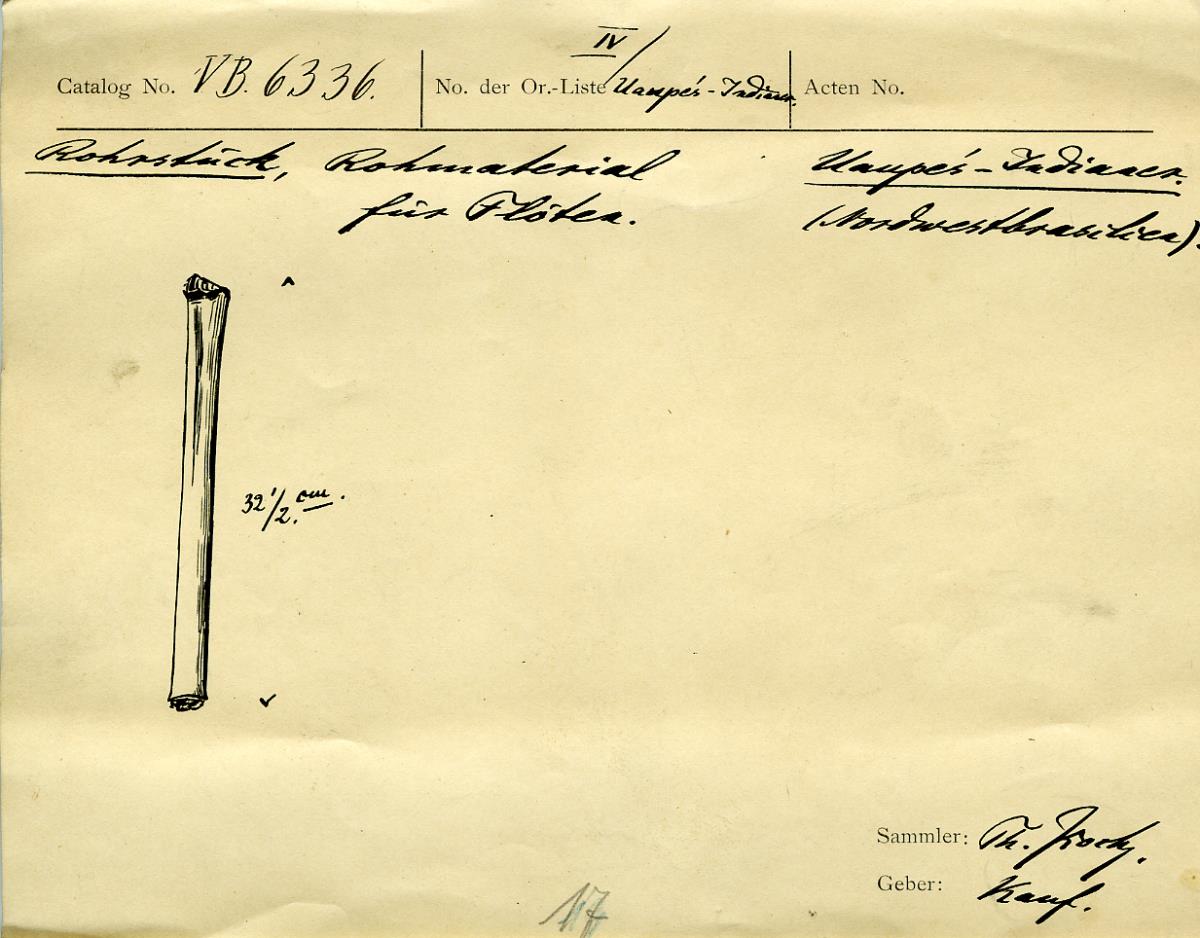 IV/
Catalog No. VB. 6336. No. der Or.-Liste Uaupés-Indianer. Acten No.
Rohrstück, Rohmaterial Uaupés-Indianer.
für Flöten. (Nordwestbrasilien).
32 1/2 cm.
Sammler: Th. Koch.
Geber: Kauf.
17